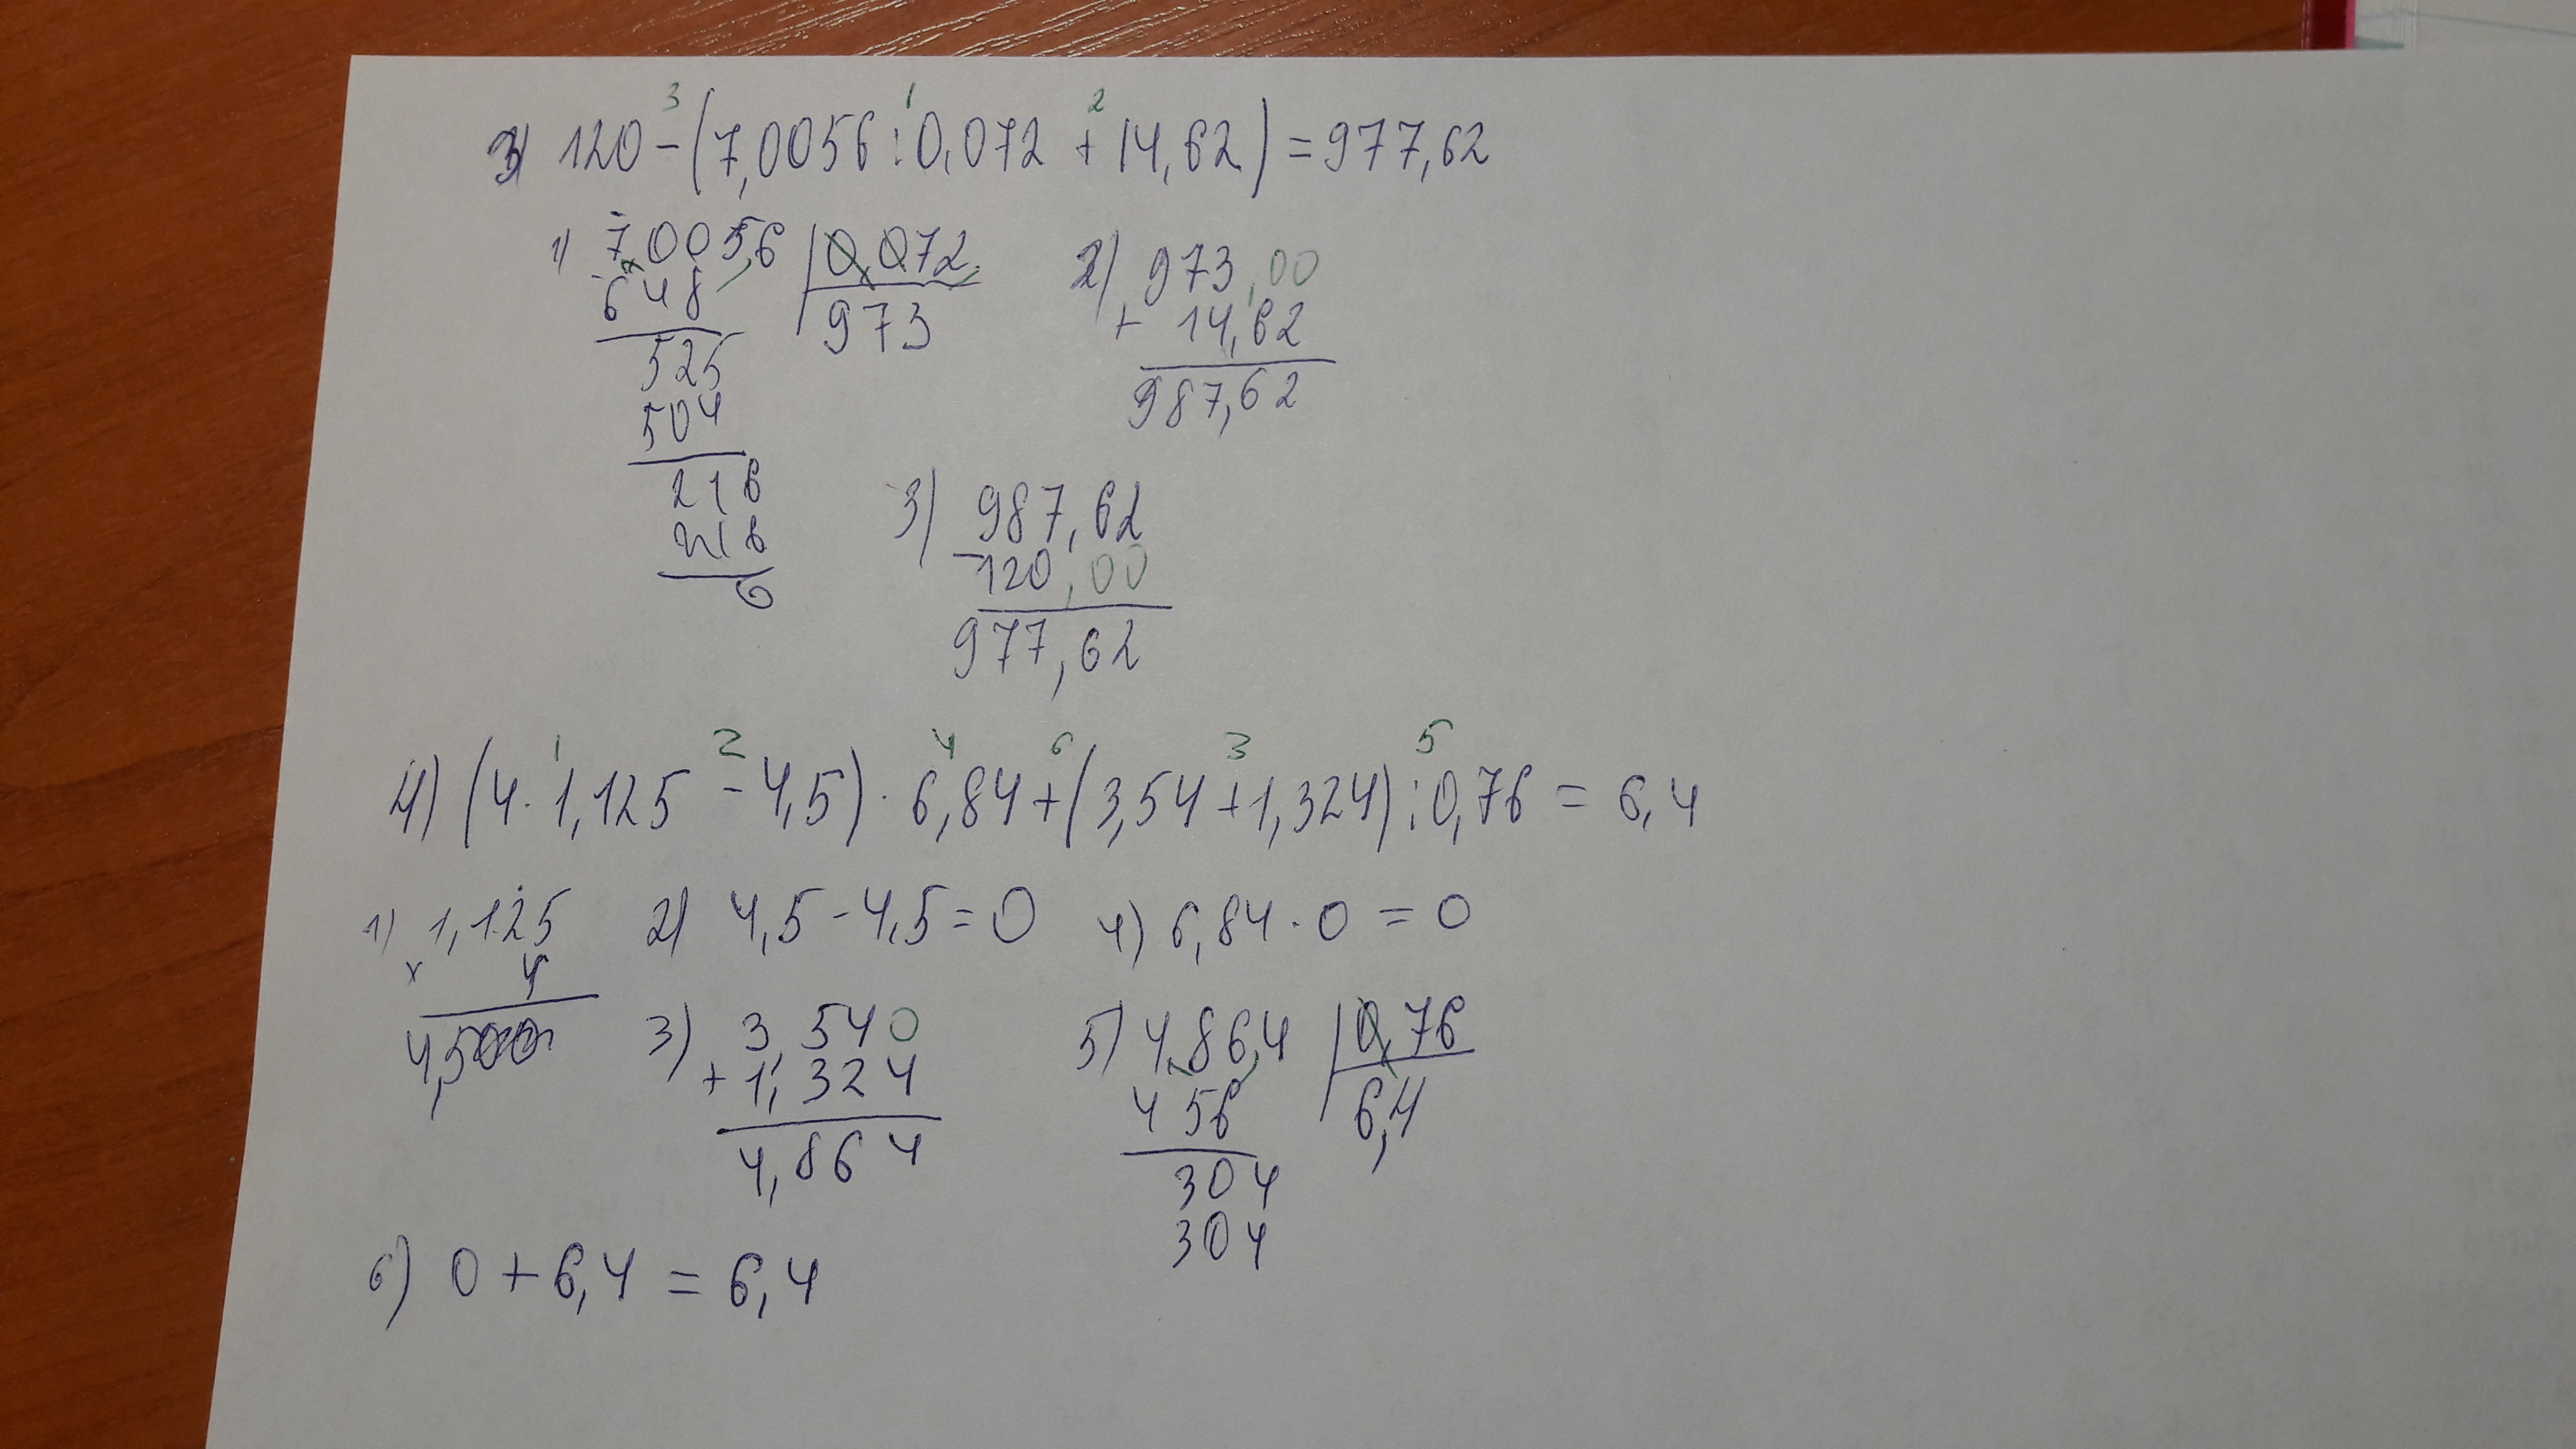 3) 120 - (7,0056 : 0,072 + 14,62) = 977,62
3 1 2
1) 7,005,6 | 0,072
648 | 973
525
504
216
216
0
2) 973,00
+ 14,62
987,62
3) 987,62
- 120,00
977,62
4) (4 · 1,125 - 4,5) · 6,84 + (3,54 + 1,324) : 0,76 = 6,4
1 2 4 6 3 5
1) 1,125
x 4
4,500
2) 4,5 - 4,5 = 0
4) 6,84 · 0 = 0
3) 3,540
+ 1,324
4,864
5) 4,86,4 | 0,76
456 | 6,4
304
304
6) 0 + 6,4 = 6,4